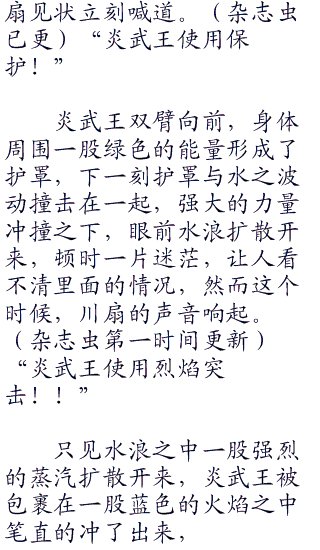 扇见状立刻喊道。（杂志虫
已更）“炎武王使用保
护！”
炎武王双臂向前，身体
周围一股绿色的能量形成了
护罩，下一刻护罩与水之波
动撞击在一起，强大的力量
冲撞之下，眼前水浪扩散开
来，顿时一片迷茫，让人看
不清里面的情况，然而这个
时候，川扇的声音响起。
（杂志虫第一时间更新）
“炎武王使用烈焰突
击！！”
只见水浪之中一股强烈
的蒸汽扩散开来，炎武王被
包裹在一股蓝色的火焰之中
笔直的冲了出来，